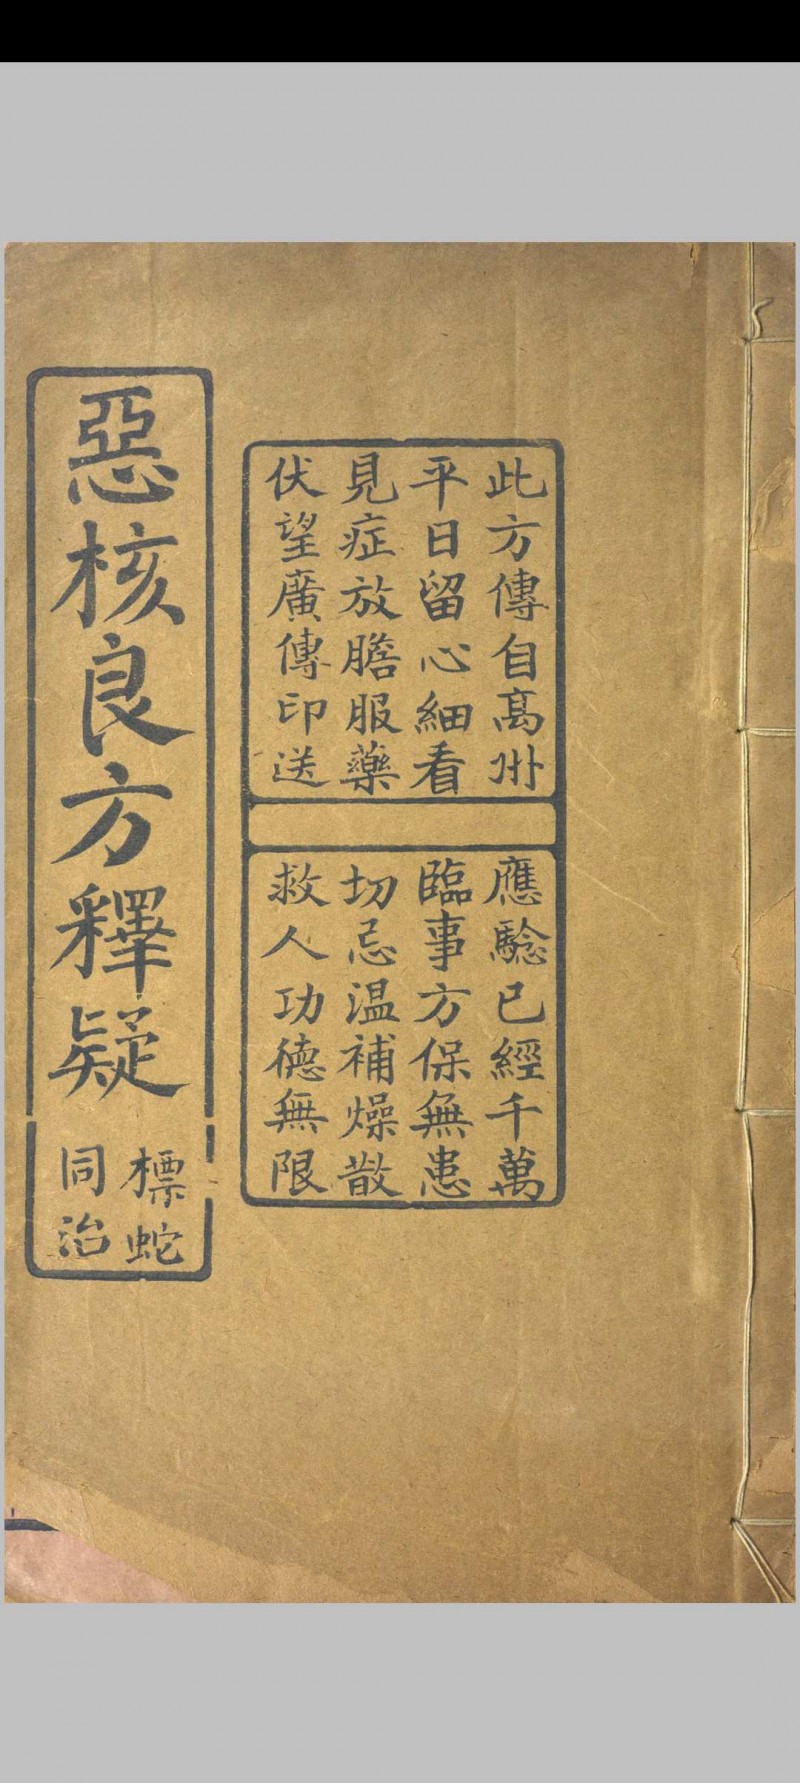 此方傳自高州
平日留心細看
見症放膽服藥
伏望廣傳印送
應驗已經千萬
臨事方保無患
切忌温補燥散
救人功德無限
惡核良方釋疑
標蛇
同治